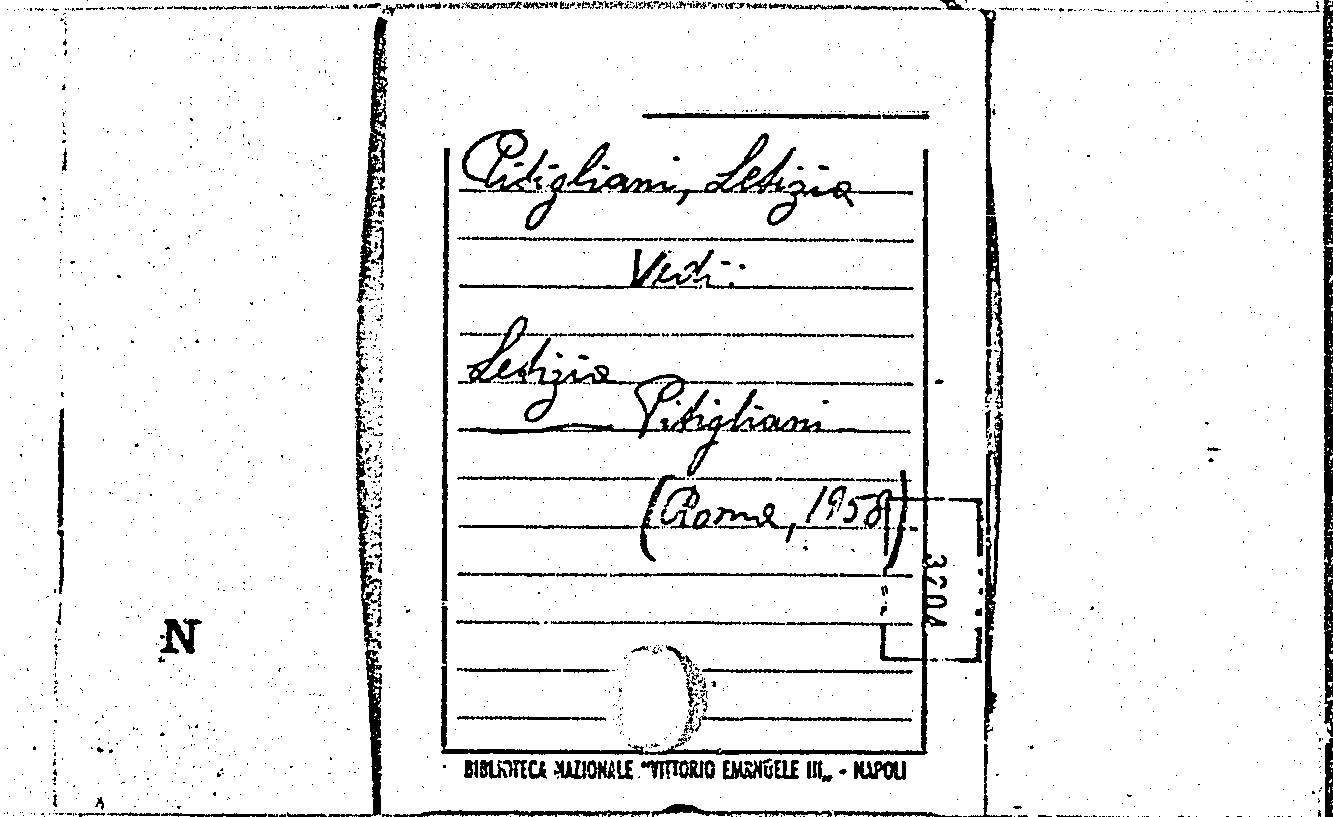 Pitigliani, Letizia
Vedi:
Letizia
Pitigliani
(Rome, 1958)
3204
N
BIBLIOTECA NAZIONALE "VITTORIO EMANUELE III„ - NAPOLI